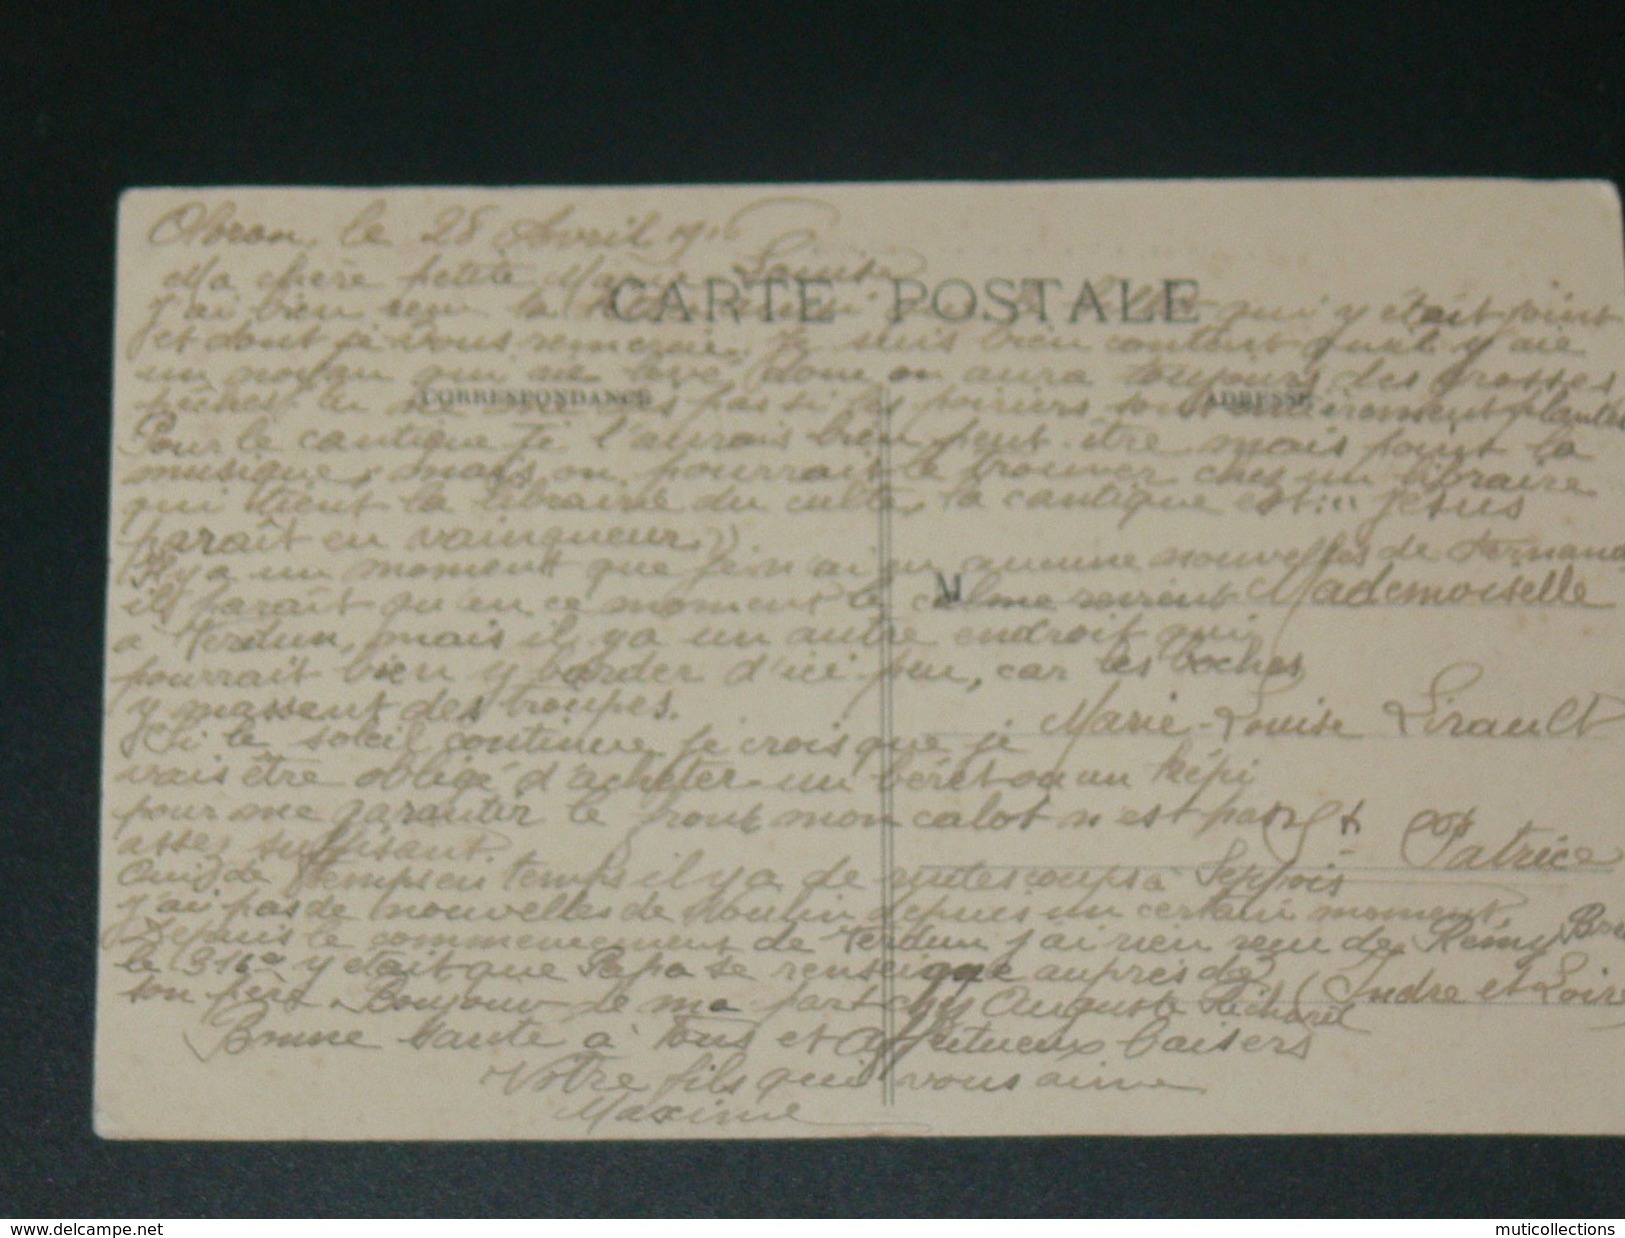 le 28 Avril 191
Ma chère petite Marie Louise
CARTE POSTALE
J'ai bien reçu la qui y était joint
et dont je vous remercie. Je suis bien content qu'il y aie
un noyau qui se lève donc on aura toujours des grosses
CORRESPONDANCE
ADRESSE
pêches. tu ne dis pas si les poiriers sont plantés
Pour le cantique je l'aurais bien peut-être mais point la
musique, mais on pourrait le trouver chez un libraire
qui tient la librairie du culte, le cantique est : " Jésus
paraît en vainqueur "
Il y a un moment que je n'ai eu aucune nouvelles de Fernand
il paraît qu'en ce moment le calme revient
à Verdun, mais il y a un autre endroit qui
pourrait bien y barder d'ici peu, car les boches
y massent des troupes.
Si le soleil continue je crois que je
vais être obligé d'acheter un béret ou un képi
pour me garantir le front mon calot n'est pas
assez suffisant.
de temps en temps il y a de coups à Seppois
J'ai pas de nouvelles de Moulin depuis un certain moment.
Depuis le commencement de Verdun j'ai rien reçu de Rémy
le 316e y était que Papa se renseigne auprès de
son père. Bonjour de ma part chez Auguste Richard
Bonne santé à tous et affectueux baisers
Votre fils qui vous aime
Maxime
M
Mademoiselle
Marie-Louise Lirault
St Patrice
(Indre et Loire)
muticollections
www.delcampe.net